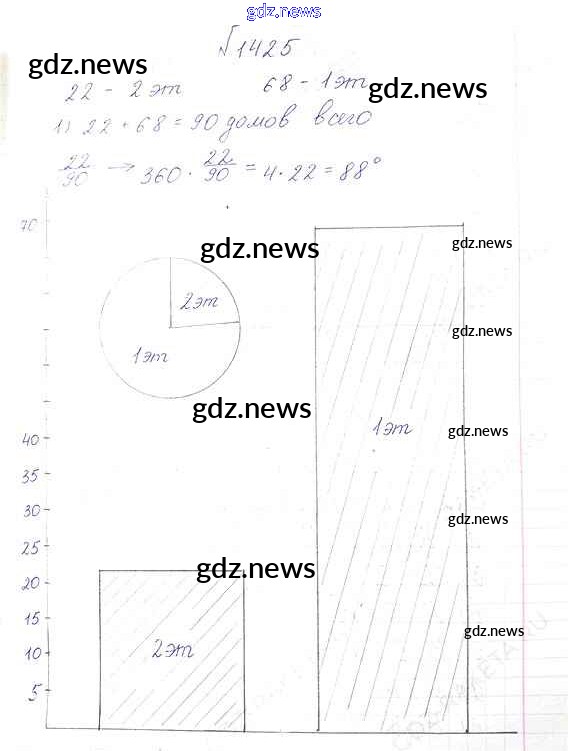 gdz.news
№1425
gdz.news
22 - 2 эт 68 - 1 эт
gdz.news
1) 22 + 68 = 90 домов всего
22/90 → 360 · 22/90 = 4 · 22 = 88°
70
gdz.news
gdz.news
2 эт
gdz.news
1 эт
gdz.news
1 эт
gdz.news
40
35
30
gdz.news
25
gdz.news
20
15
gdz.news
2 эт
10
5